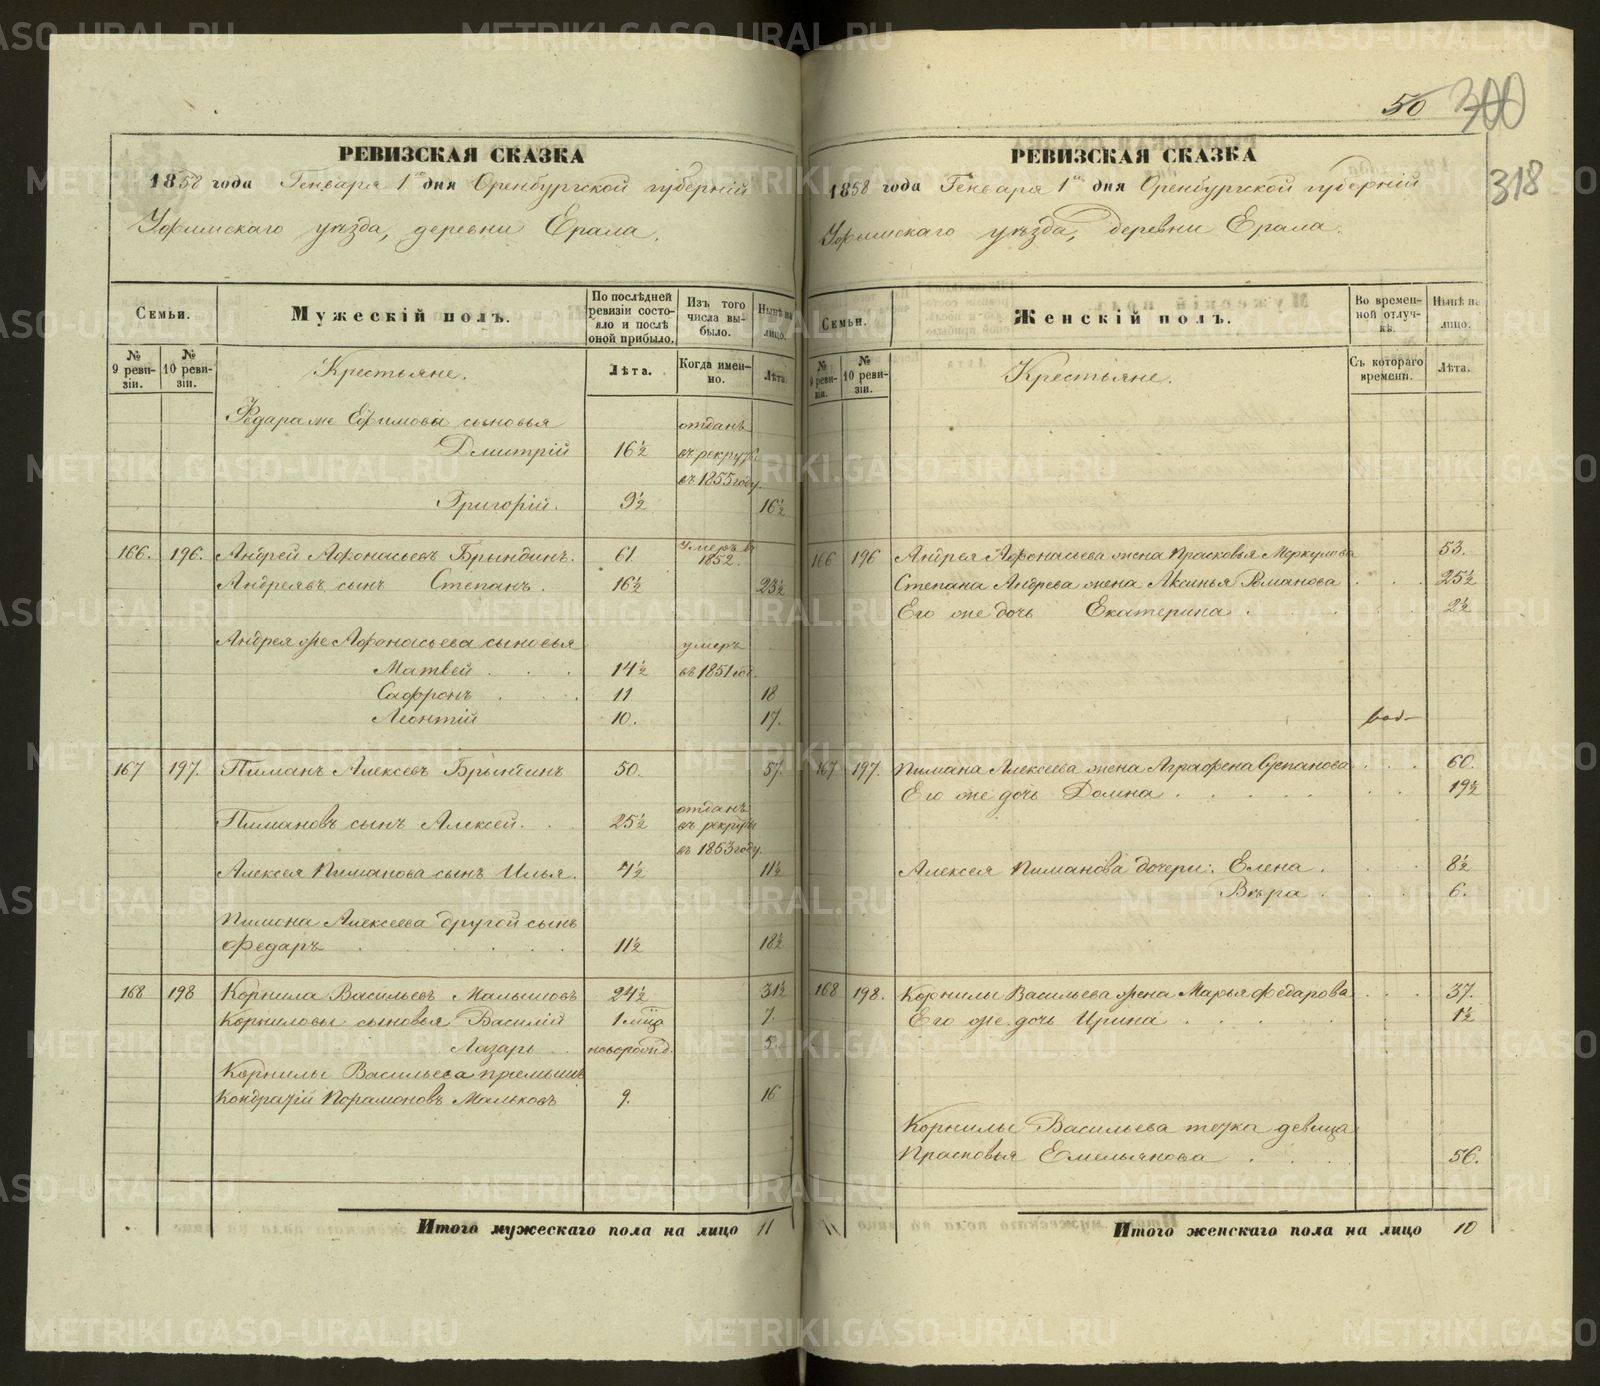 50 300
318
РЕВИЗСКАЯ СКАЗКА
1858 года Генваря 1го дня Оренбургской губерніи
Уфимскаго уѣзда, деревни Ерала.
Семьи.
Мужескій полъ.
По послѣдней ревизіи состояло и послѣ оной прибыло.
Изъ того числа выбыло.
Нынѣ на лицо.
№ 9 ревизіи.
№ 10 ревизіи.
Крестьяне.
Лѣта.
Когда именно.
Лѣта.
Федара же Ефимова сыновья отданъ
Дмитрій 16½ въ рекруты
въ 1855 году.
Григорій. 9½ 16½
166. 196. Андрей Афонасьевъ Брындинъ. 61 умеръ въ 1852.
Андреявъ сынъ Степанъ. 16½ 23½
Андрея же Афонасьева сыновья умеръ
Матвей 14½ въ 1851 год.
Сафронъ 11 18
Леонтій 10. 17.
167 197. Пиманъ Алексеевъ Брындинъ 50. 57.
отданъ
Пимановъ сынъ Алексей. 25½ въ рекруты
въ 1853 году.
Алексея Пиманова сынъ Илья. 4½ 11½
Пимона Алексеева другой сынъ
Федаръ 11½ 18½
168 198 Корнила Васильевъ Малышовъ 24½ 31½
Корниловы сыновья Василій 1 мѣца 7.
Лазарь новорожд. 5.
Корнилы Васильева приемышъ
Кондратій Парамоновъ Мальковъ 9. 16
Итого мужескаго пола на лицо 11
РЕВИЗСКАЯ СКАЗКА
1858 года Генваря 1го дня Оренбургской губерніи
Уфимскаго уѣзда, деревни Ерала.
Семьи.
Женскій полъ.
Во временной отлучкѣ.
Нынѣ на лицо.
№ 9 ревизіи.
№ 10 ревизіи.
Крестьяне.
Съ котораго времени.
Лѣта.
166 196 Андрея Афонасьева жена Прасковья Меркулова 53.
Степана Андрева жена Аксинья Романова 25½
Его же дочь Екатерина 2½
167 197. Пимана Алексеева жена Аграфена Степанова 60.
Его же дочь Домна 19½
Алексея Пиманова дочери: Елена 8½
Вѣра 6.
168 198. Корнилы Васильева жена Марья Федарова 37.
Его же дочь Ирина 1½
Корнилы Васильева тетка девица
Прасковья Емельянова 56.
Итого женскаго пола на лицо 10
METRIKI.GASO-URAL.RU